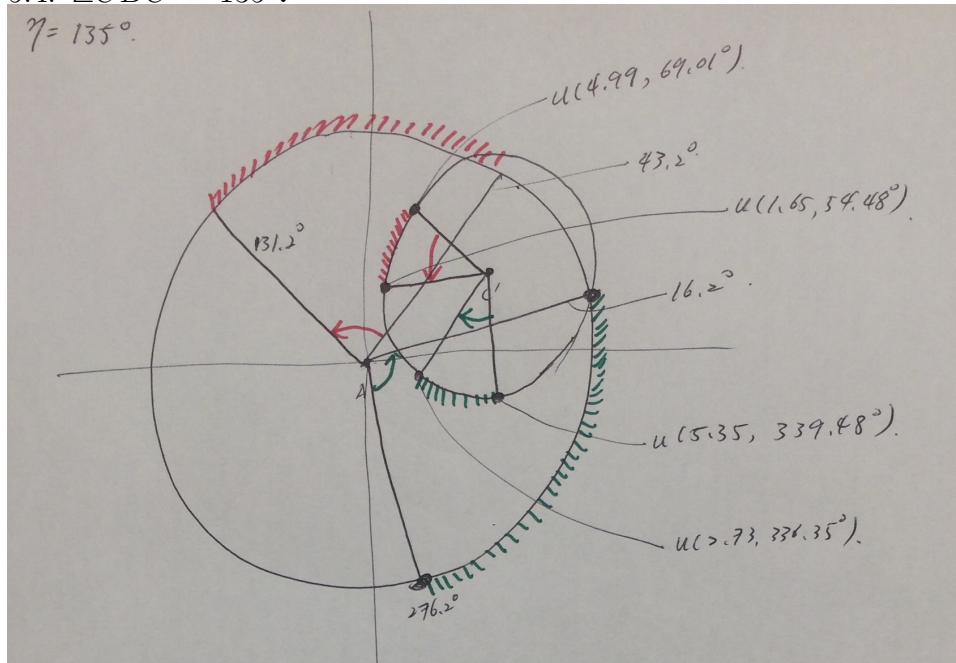 η = 135°.
u(4.99, 69.01°).
43.2°
u(1.65, 54.48°).
131.2°
C
16.2°
A
u(5.35, 339.48°).
u(2.73, 336.35°).
276.2°